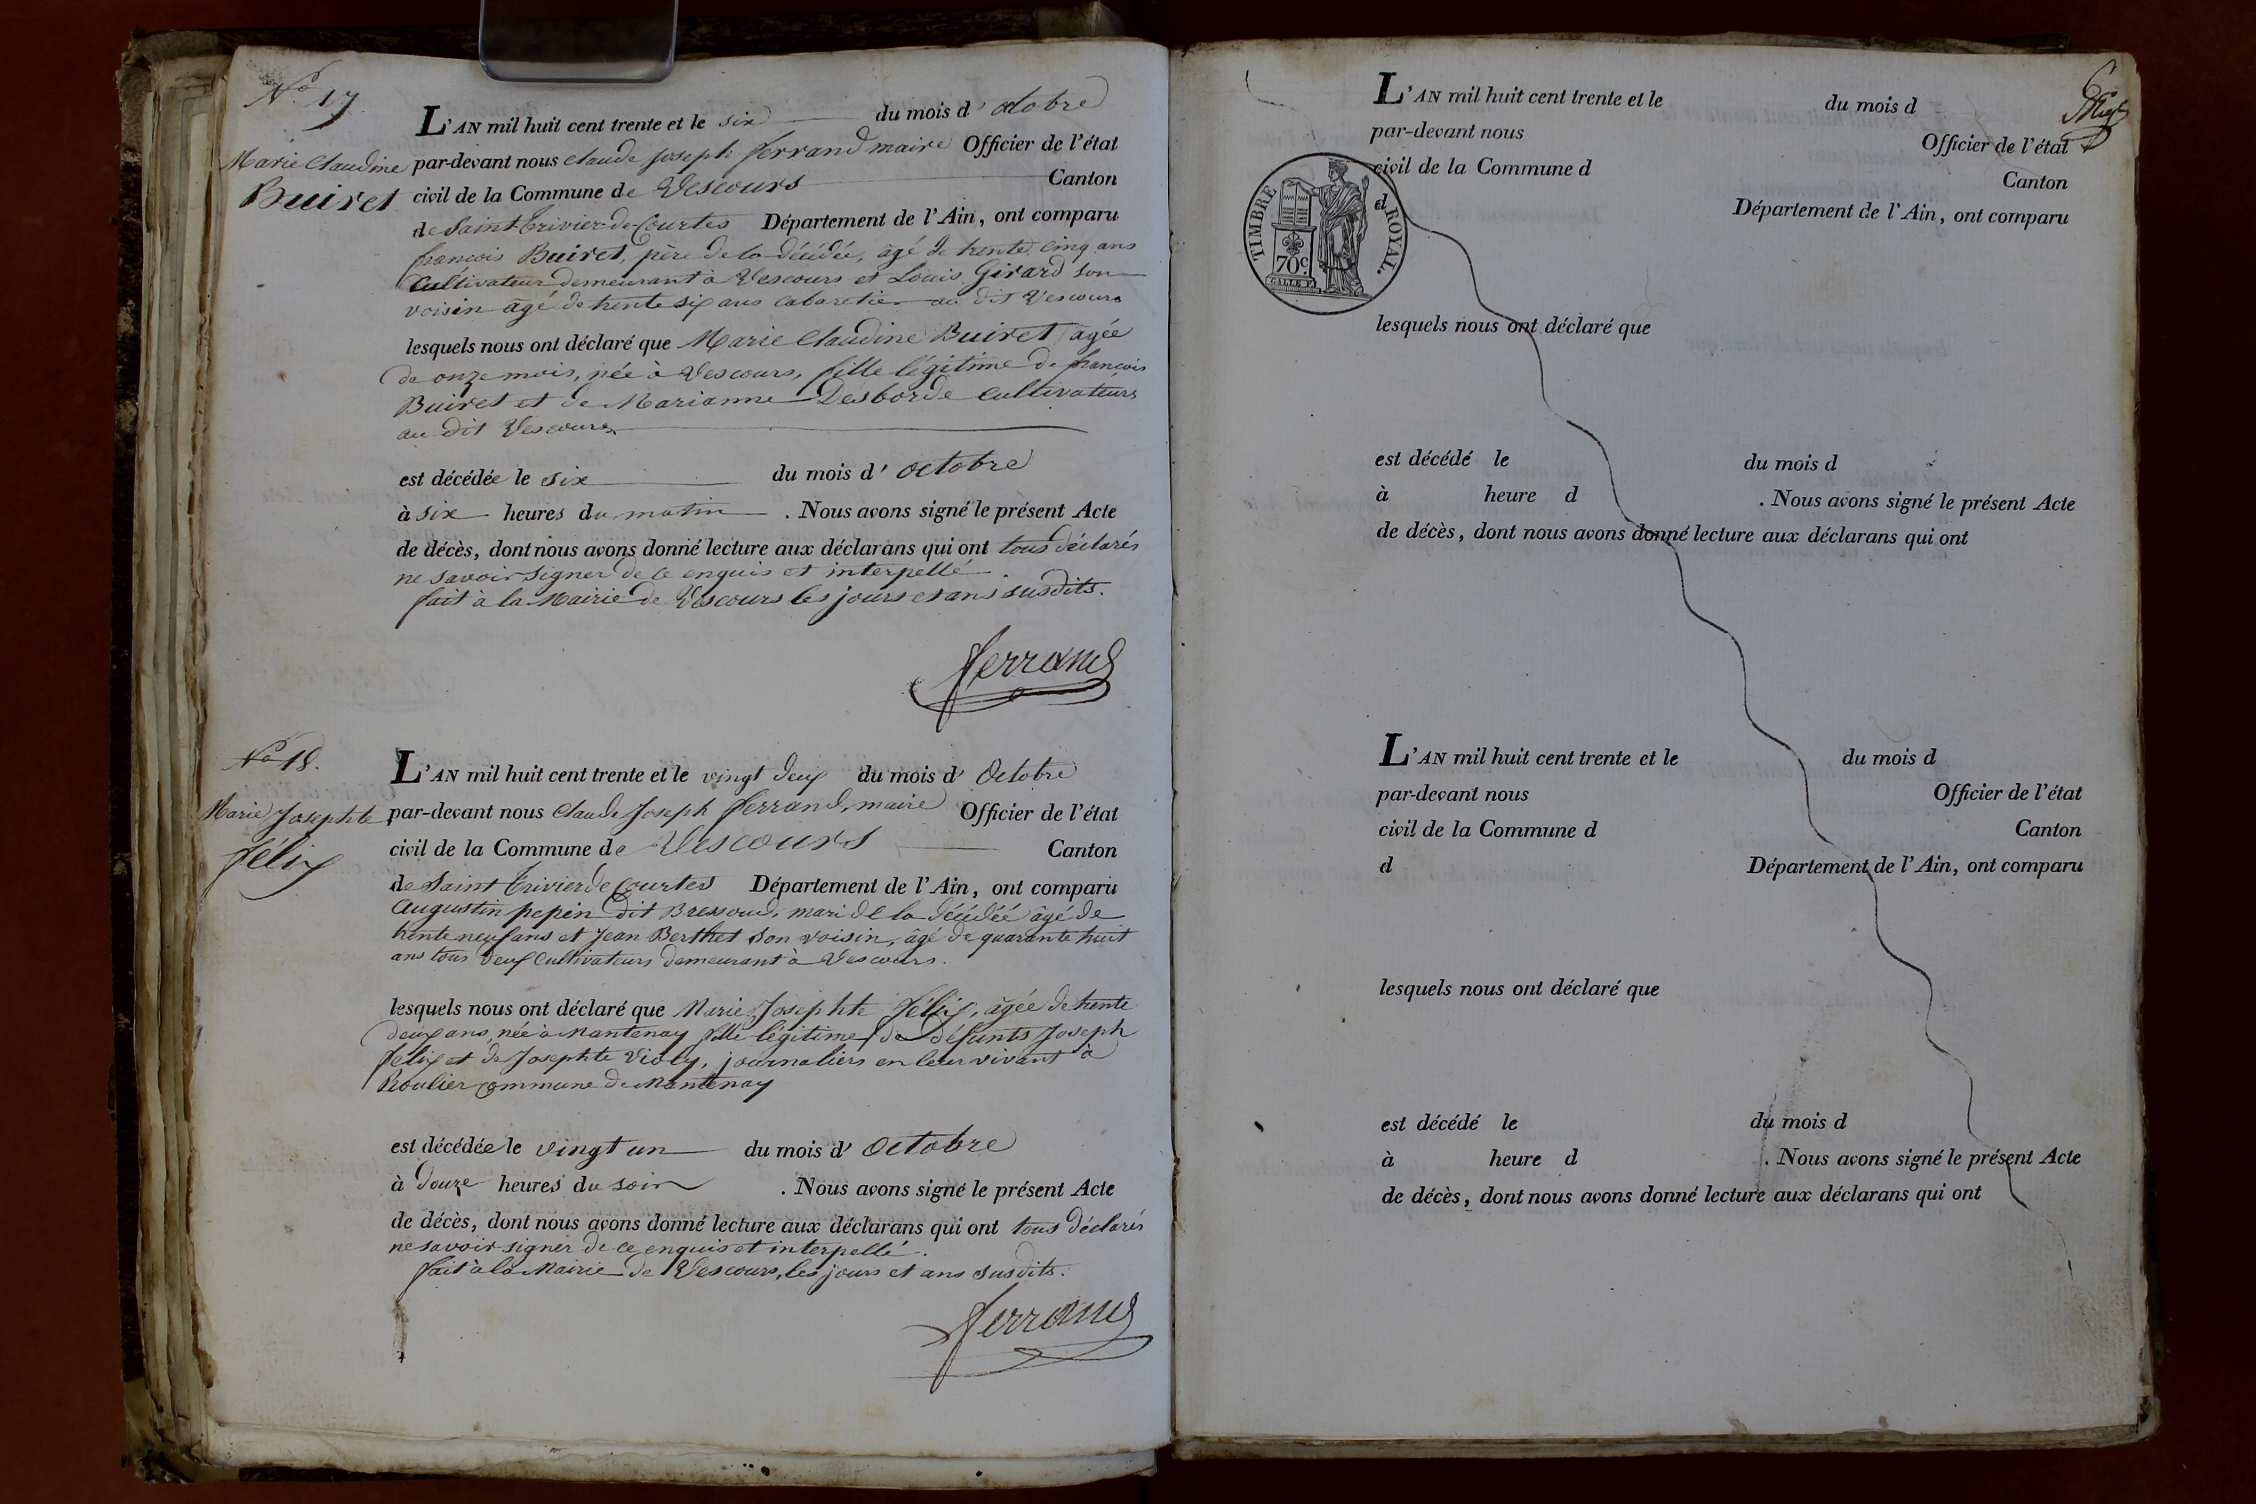 No 17
Marie Claudine
Buiret
L'AN mil huit cent trente et le six du mois d'octobre
par-devant nous claude joseph ferrand maire Officier de l'état
civil de la Commune de Vescours Canton
de Saint-Trivier-de-Courtes Département de l'Ain, ont comparu
françois Buiret, père de la décédée, âgé de trente cinq ans
Cultivateur demeurant à Vescours et Louis Girard son
voisin âgé de trente six ans cabaretier au dit Vescours
lesquels nous ont déclaré que Marie Claudine Buiret âgée
de onze mois, née à Vescours, fille légitime de françois
Buiret et de Marianne Desborde cultivateurs
au dit Vescours
est décédée le six du mois d'octobre
à six heures du matin . Nous avons signé le présent Acte
de décès, dont nous avons donné lecture aux déclarans qui ont tous déclarés
ne savoir signer de ce enquis et interpellé
fait à la Mairie de Vescours les jours et ans susdits.
ferrand
No 18.
Marie Josephte
félix
L'AN mil huit cent trente et le vingt deux du mois d'Octobre
par-devant nous claude Joseph ferrand, maire Officier de l'état
civil de la Commune de Vescours Canton
de Saint Trivier de Courtes Département de l'Ain, ont comparu
Augustin pepin dit Bressoud, mari de la décédéé âgé de
trente neuf ans et Jean Berthet son voisin, âgé de quarante huit
ans tous deux cultivateurs demeurant à Vescours.
lesquels nous ont déclaré que Marie Josephte félix, âgée de trente
deux ans, née à Mantenay fille légitime de défunts Joseph
félix et de Josephte Violy, journaliers en leur vivant à
commune de Mantenay
est décédée le vingt un du mois d'Octobre
à douze heures du soir . Nous avons signé le présent Acte
de décès, dont nous avons donné lecture aux déclarans qui ont tous déclarés
ne savoir signer de ce enquis et interpellé.
fait à la Mairie de Vescours, les jours et ans susdits.
ferrand
L'AN mil huit cent trente et le du mois d
par-devant nous Officier de l'état
civil de la Commune d Canton
d Département de l'Ain, ont comparu
TIMBRE ROYAL.
70c
lesquels nous ont déclaré que
est décédé le du mois d
à heure d . Nous avons signé le présent Acte
de décès, dont nous avons donné lecture aux déclarans qui ont
L'AN mil huit cent trente et le du mois d
par-devant nous Officier de l'état
civil de la Commune d Canton
d Département de l'Ain, ont comparu
lesquels nous ont déclaré que
est décédé le du mois d
à heure d . Nous avons signé le présent Acte
de décès, dont nous avons donné lecture aux déclarans qui ont